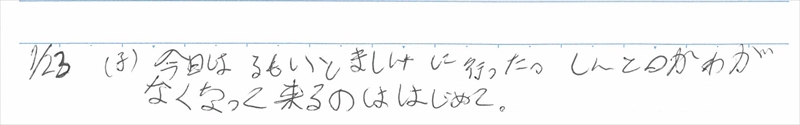 1/23 (ま) 今日は るもいとましけ に行った。 しんとのかわが
なくなって 来るのははじめて。